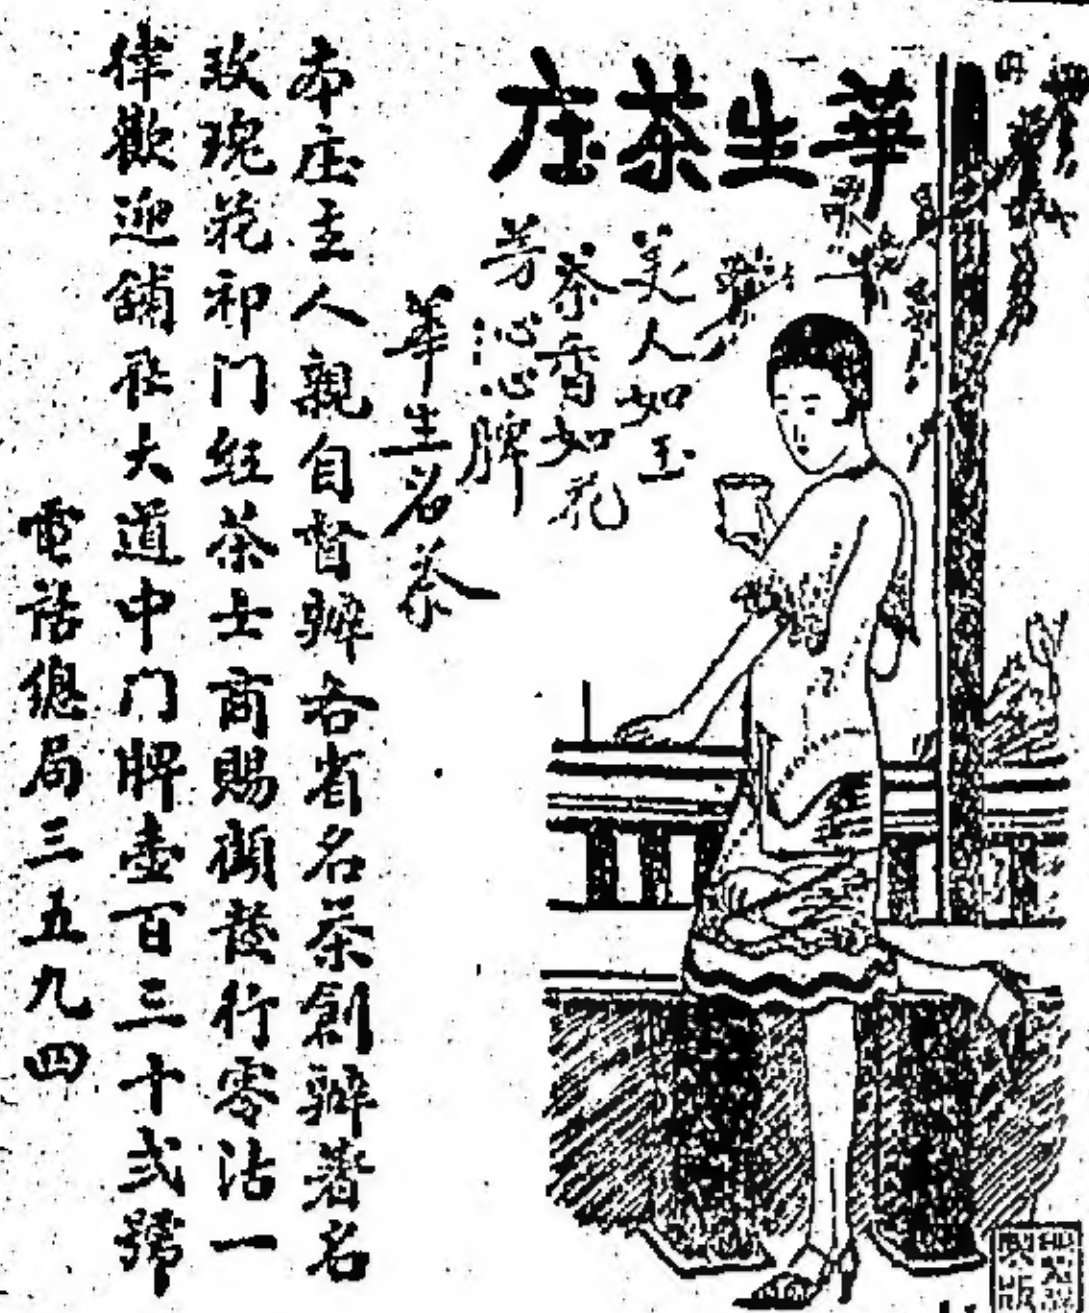 華生茶庄
美人如玉
茶香如花
芳沁心脾
華生名茶
本庄主人親自督辦各省名茶創辦著名
玫瑰花祁门紅茶士商賜顧發行零沽一
律歡迎舖在大道中门牌壹百三十弍號
電話總局三五九四